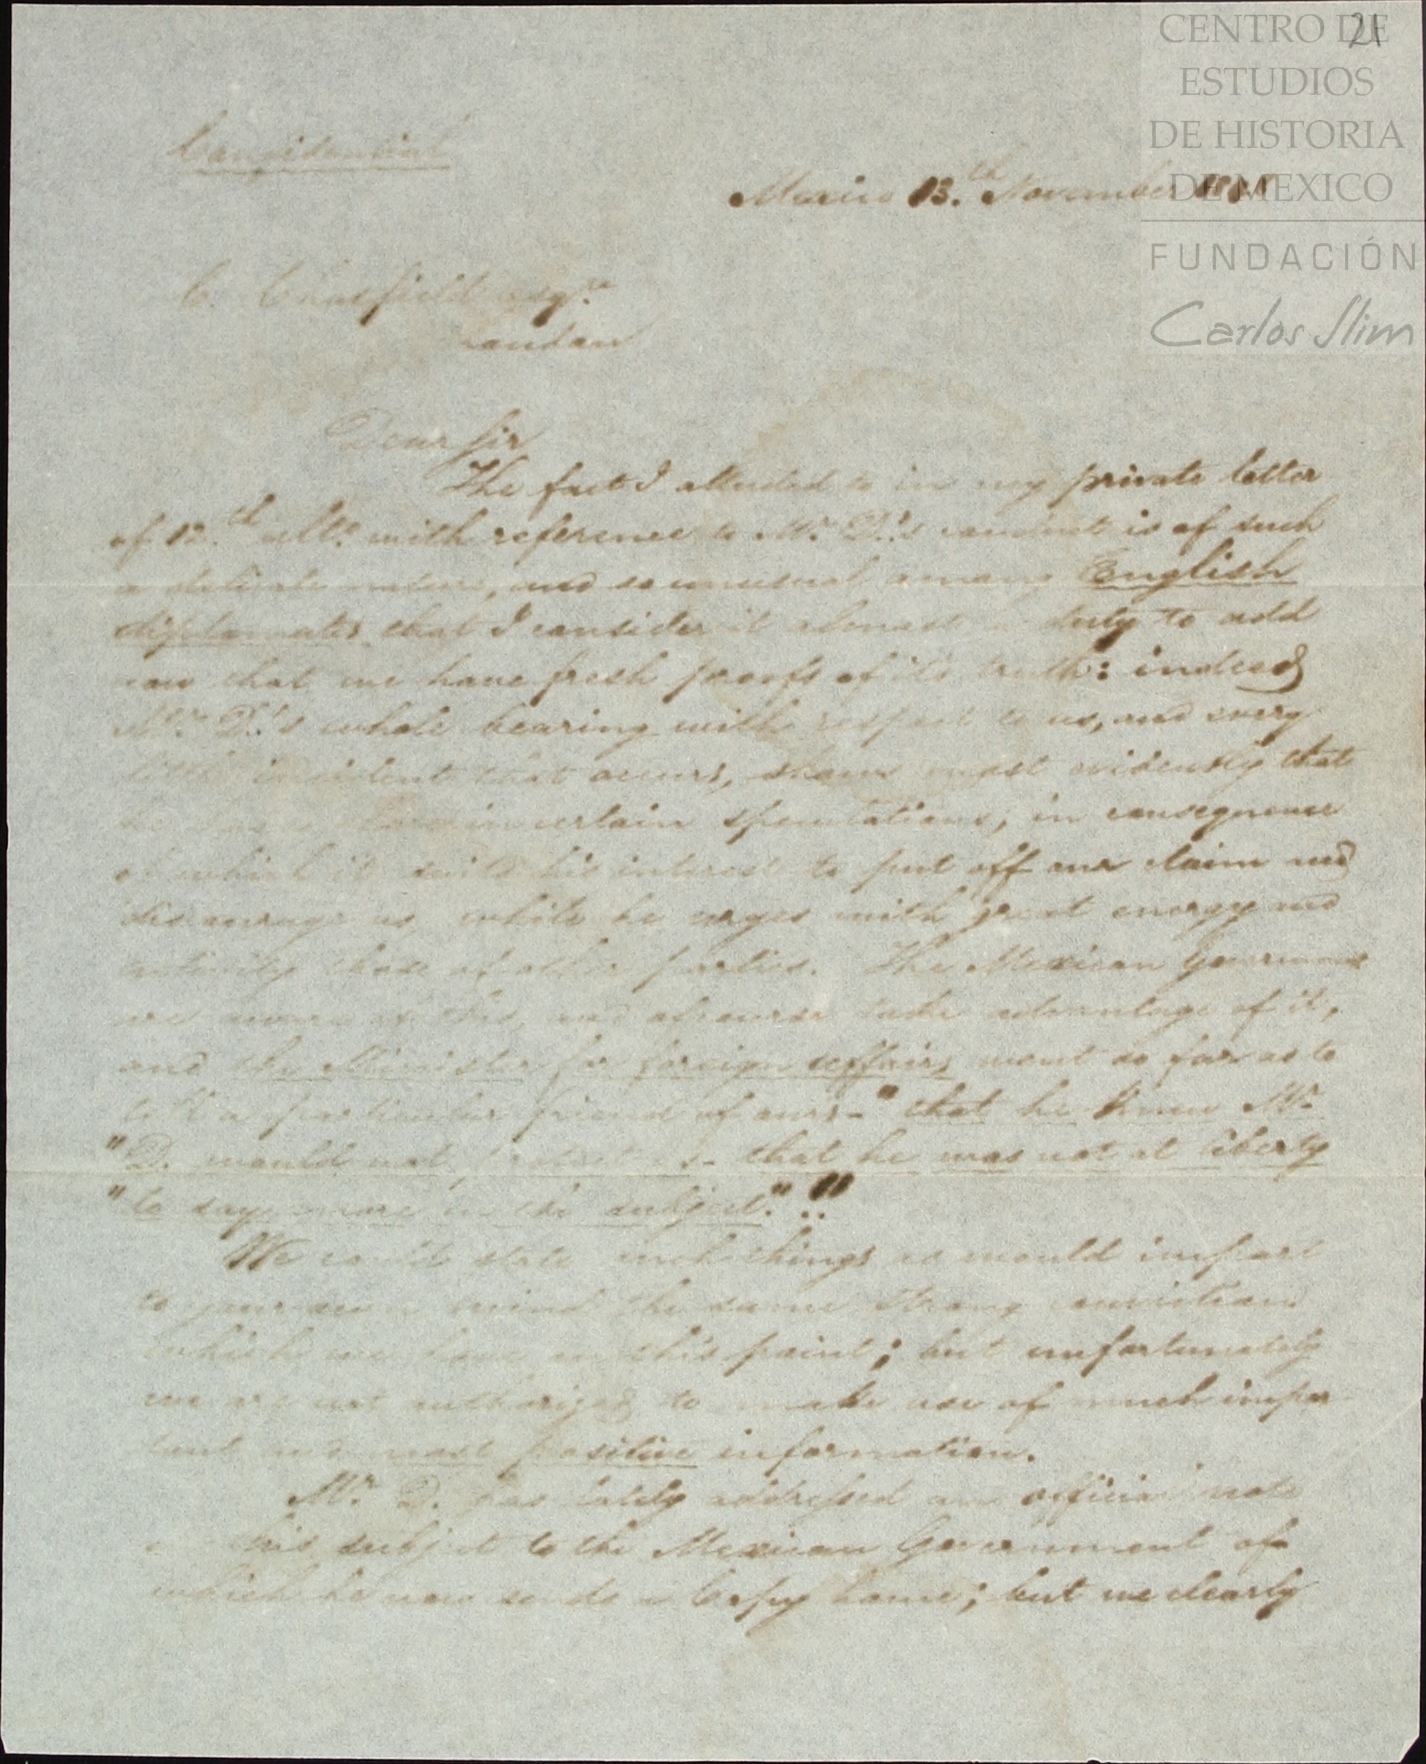 21
CENTRO DE
ESTUDIOS
DE HISTORIA
DE MEXICO
FUNDACIÓN
Carlos Slim
Confidential
Mexico 13.th November
C. Chatfield esqre
London
Dear Sir
The fact I alluded to in my private letter
of 12th ulto. with reference to Mr. D.'s conduct is of such
a delicate nature, and so unusual among English
diplomates that I consider it almost a duty to add
now that we have fresh proofs of its truth: indeed
Mr. D.'s whole bearing with respect to us, and every
little incident that occurs, shows most evidently that
he in certain speculations, in consequence
of which it suits his interest to put off our claim and
discourage us while he urges with great energy and
activity those of other parties. The Mexican Government
are aware of this, and of course take advantage of it,
and the Minister for foreign affairs went so far as to
tell a particular friend of ours - "that he knew Mr.
"D. would not protect us - that he was not at liberty
"to say more on the subject."!!
We could state such things as would impart
to your own mind the same strong conviction
which we have on this point; but unfortunately
we are not authorized to make use of much impor
tant and most positive information.
Mr. D. has lately addressed an official note
on this subject to the Mexican Government of
which he now sends a Copy home; but we clearly